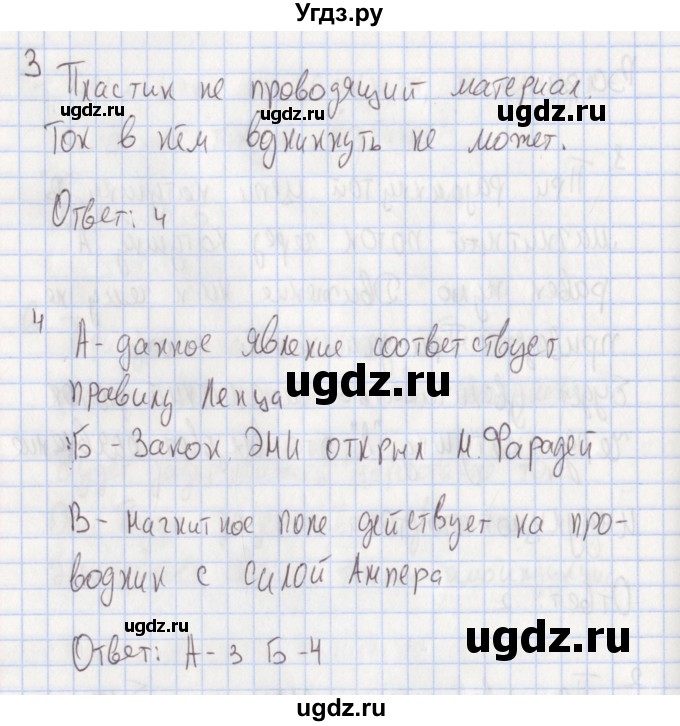 Угдз.ру
3 Пластик не проводящий материал.
ugdz.ru ugdz.ru
Ток в нём вдникнуть не может.
Ответ: 4
ugdz.ru
4
А - данное явление соответствует
правилу Ленца ugdz.ru
Б - Закон ЭМИ открыл М. Фарадей
В - Магнитное поле действует на про-
водник с силой Ампера
ugdz.ru ugdz.ru
Ответ: А - 3 Б - 4
Угдз.ру